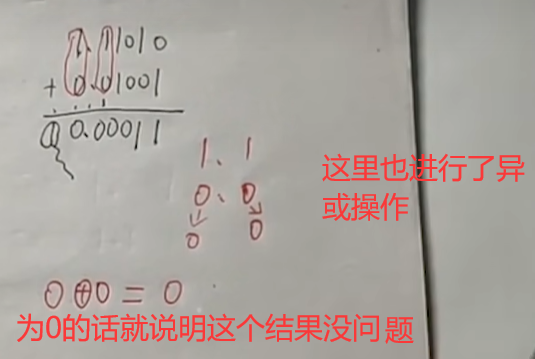 1.11010
+ 0.01001
① 0.00011
1. 1
0. 0
0 0
这里也进行了异
或操作
0⊕0=0
为0的话就说明这个结果没问题